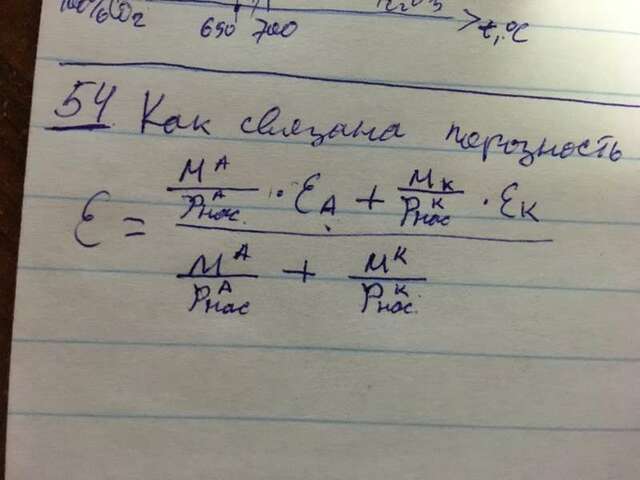 100% CO₂
650 700 t, °C
54 Как связана порозность
ε = (M^A / ρ^A нас. · ε_A + M_K / ρ^K нас · ε_K) / (M^A / ρ^A нас + M^K / ρ^K нас.)